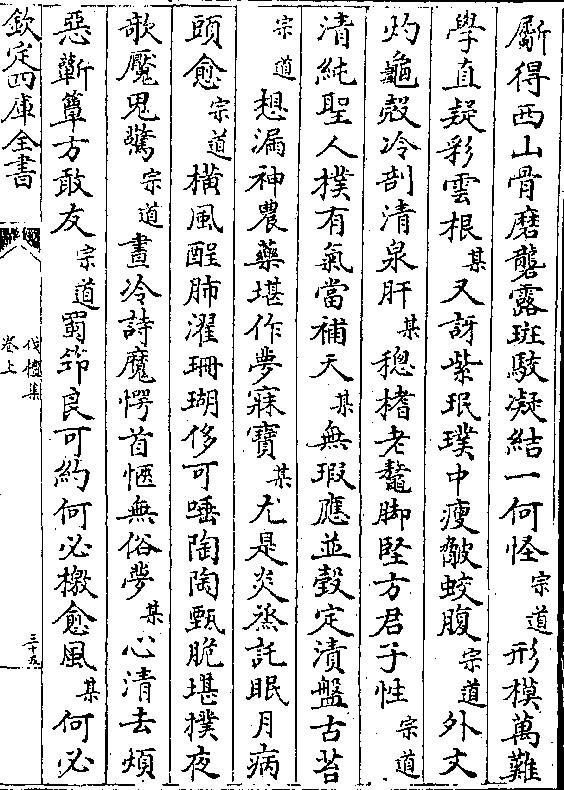 斸得西山骨磨礲露班駮凝結一何怪宗道形模萬難
學直疑彩雲根某又訝紫珉璞中瘦皺蛟腹宗道外文
灼龜殻冷剖清泉肝某穏榰老鼇脚堅方君子性宗道
清純聖人樸有氣當補天某無瑕應並瑴定漬盤古苔
宗道想漏神農藥堪作夢寐寶某尤是炎蒸託眠月病
頭愈宗道橫風酲肺濯珊瑚侈可唾陶陶甄脆堪撲夜
欹魘鬼驚宗道晝冷詩魔愕首愜無俗夢某心清去煩
惡蘄簟方敢友宗道蜀笻良可約何必檄愈風某何必
欽定四庫全書
伐檀集
卷上
三十五